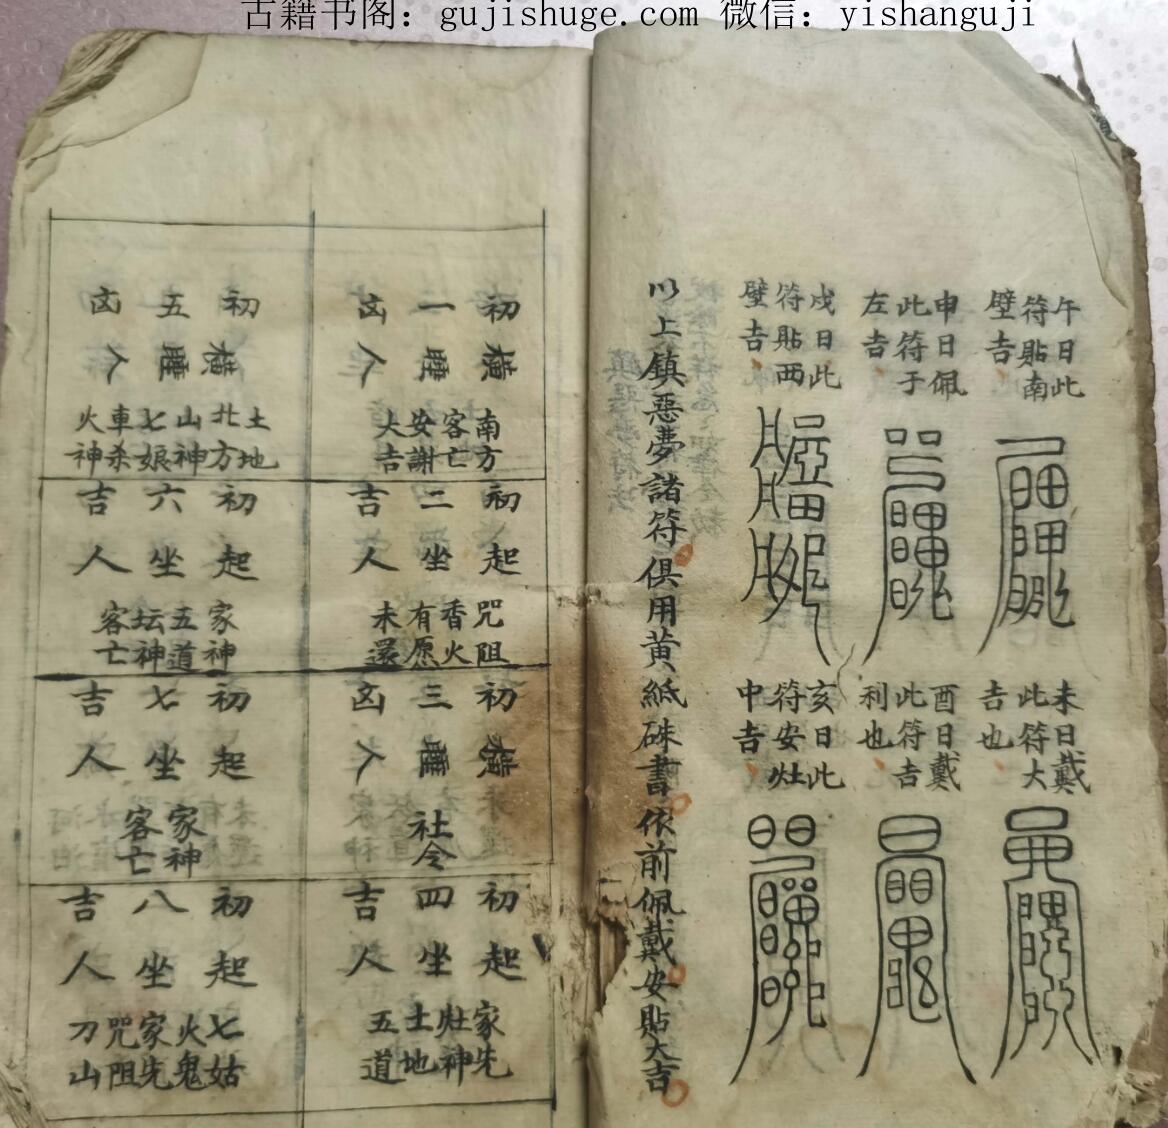 古籍书阁：gujishuge.com 微信：yishanguji
午日此
符貼南
壁吉
未日戴
此符大
吉也
申日佩
此符于
左吉
酉日戴
此符吉
利也
戌日此
符貼西
壁吉
亥日此
符安灶
中吉
以上鎮惡夢諸符俱用黄紙硃書依前佩戴安貼大吉
初一凶
橫睡人
南方
客亡
安謝
大吉
初二吉
起坐人
咒阻
香火
有愿
未還
初三凶
橫睡人
社令
初四吉
起坐人
家先
灶神
土地
五道
初五凶
橫睡人
土地
北方
山神
七娘
車杀
火神
初六吉
起坐人
家神
五道
坛神
客亡
初七吉
起坐人
家神
客亡
初八吉
起坐人
七姑
火鬼
家先
咒阻
刀山